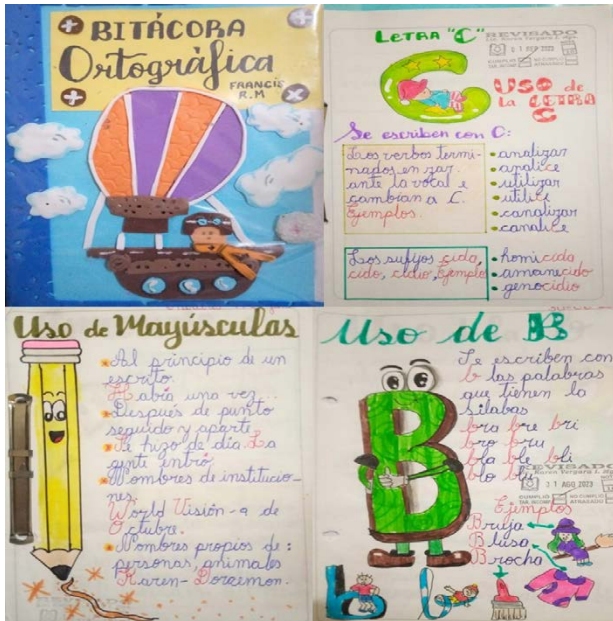 BITÁCORA
Ortográfica
FRANCIS
R.M
LETRA "C"
REVISADO
21 SEP 2023
USO de
la LETRA
C
Se escriben con C:
Los verbos termi-
nados en zar
ante la vocal e
cambian a C.
Ejemplos.
• analizar
• analice
• utilizar
• utilice
• canalizar
• canalice
Los sufijos cida,
cido, cidio, Ejemplo
• homicida
• amanecido
• genocidio
Uso de Mayúsculas
Al principio de un
escrito.
Había una vez...
Después de punto
seguido y aparte
Se hizo de día. La
gente entró
Nombres de institucio-
nes.
World Visión - 9 de
Octubre.
Nombres propios de:
personas, animales
Karen - Doraemon.
Uso de B
Se escriben con
b las palabras
que tienen la
sílabas
bra bre bri
bro bru
bla ble bli
blo blu
REVISADO
Karen Vergara
31 AGO 2023
CUMPLIO
NO CUMPLIO
ATRASADO
Ejemplos
Bruja
Blusa
Brocha
B
b